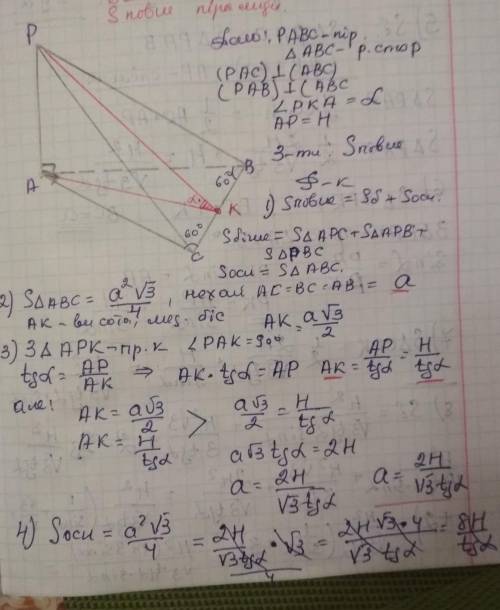 Sповне піраміди.
P
Дано: PABC-пір.
△ABC-р.стор
(PAC)⊥(ABC)
(PAB)⊥(ABC
∠PKA = α
AP = H
З-ти: Sповне
A
60°
B
α
K
60°
C
1) Sповне = Sб + Sосн.
Sбічне = S△APC + S△APB +
S△PBC
Sосн = S△ABC.
2) S△ABC = a²√3/4, нехай AC=BC=AB = a
AK - висота, мед. біс AK = a√3/2
3) З △APK-пр.к ∠PAK=90°
tgα = AP/AK ⇒ AK·tgα = AP AK = AP/tgα = H/tgα
але:
AK = a√3/2
AK = H/tgα
>
a√3/2 = H/tgα
a√3 tgα = 2H
a = 2H/√3tgα
a = 2H/√3tgα
4) Sосн = a²√3/4 = 2H/√3tgα · √3/4 = 2H√3·4/√3 tgα = 8H/tgα